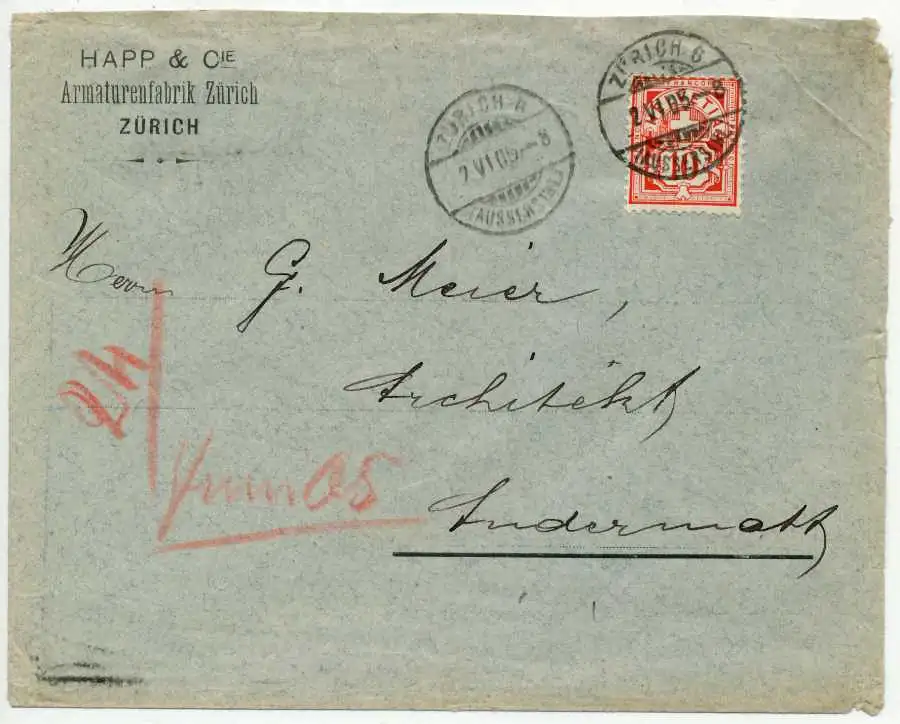 HAPP & CIE
Armaturenfabrik Zürich
ZÜRICH
ZÜRICH 6
2.VI.05.–8
(AUSSERSIHL)
ZÜRICH 6
2.VI.05.–8
(AUSSERSIHL)
FRANCO
HELVETIA
10
Herrn G. Meier,
Architekt
Andermatt
Juni 05